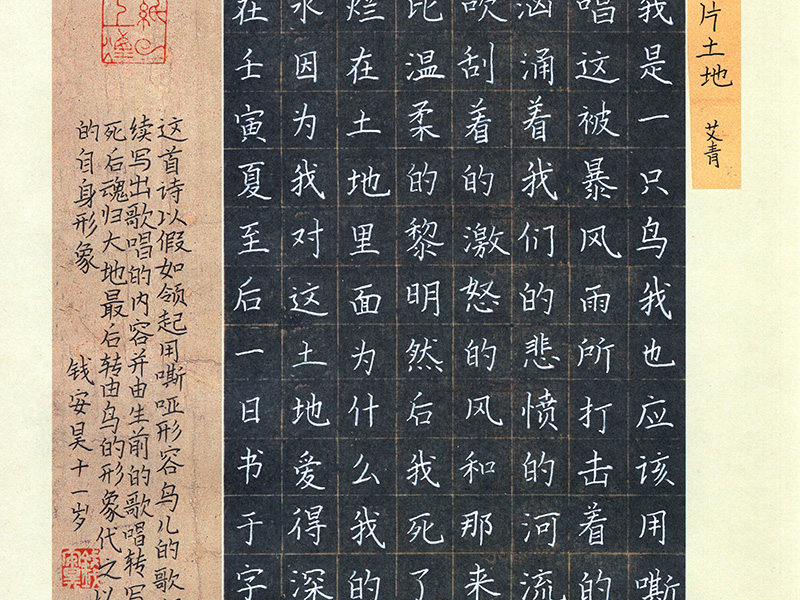 片土地 艾青
我是一只鸟我也应该用嘶
唱这被暴风雨所打击着的
汹涌着我们的悲愤的河流
吹刮着的激怒的风和那来
比温柔的黎明然后我死了
烂在土地里面为什么我的
水因为我对这土地爱得深
在壬寅夏至后一日书于字
这首诗以假如领起用嘶哑形容鸟儿的歌
续写出歌唱的内容并由生前的歌唱转写
死后魂归大地最后转由鸟的形象代之以
的自身形象 钱安昊十一岁